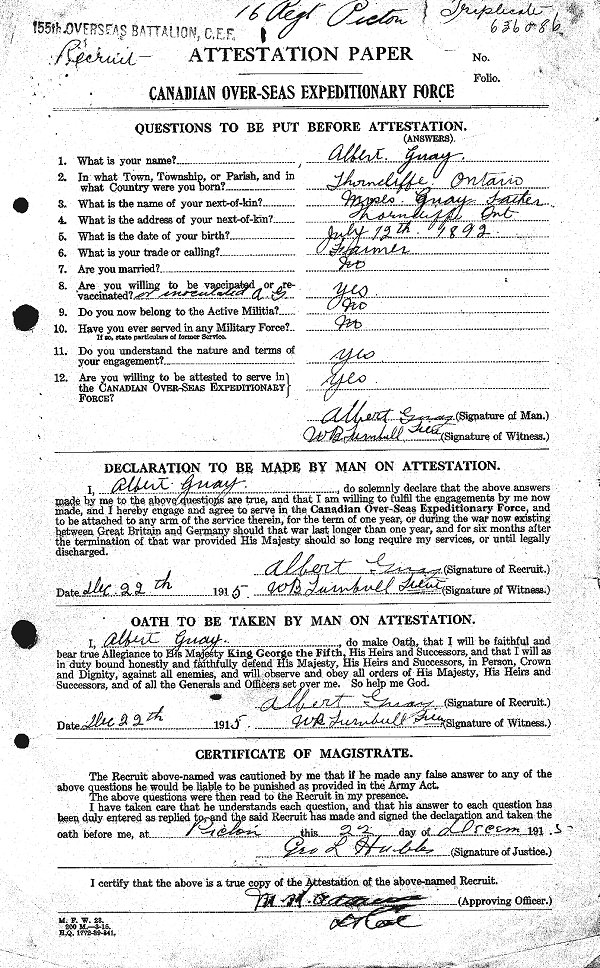 16 Regt Picton
Triplicate
636086
155th OVERSEAS BATTALION, C.E.F.
Recruit
ATTESTATION PAPER
No.
Folio.
CANADIAN OVER-SEAS EXPEDITIONARY FORCE
QUESTIONS TO BE PUT BEFORE ATTESTATION.
(ANSWERS).
1. What is your name? Albert Guay.
2. In what Town, Township, or Parish, and in
what Country were you born? Thorncliffe Ontario
3. What is the name of your next-of-kin? Moses Guay Father
4. What is the address of your next-of-kin? Thorncliffe Ont
5. What is the date of your birth? July 12th 1892
6. What is your trade or calling? Farmer
7. Are you married? No
8. Are you willing to be vaccinated or re-
vaccinated? or inoculated A.G. Yes
9. Do you now belong to the Active Militia? No
10. Have you ever served in any Military Force? No
If so, state particulars of former Service.
11. Do you understand the nature and terms of
your engagement? Yes
12. Are you willing to be attested to serve in
the CANADIAN OVER-SEAS EXPEDITIONARY Yes
FORCE?
Albert Guay (Signature of Man.)
W B Turnbull Lieut (Signature of Witness.)
DECLARATION TO BE MADE BY MAN ON ATTESTATION.
I, Albert Guay, do solemnly declare that the above answers
made by me to the above questions are true, and that I am willing to fulfil the engagements by me now
made, and I hereby engage and agree to serve in the Canadian Over-Seas Expeditionary Force, and
to be attached to any arm of the service therein, for the term of one year, or during the war now existing
between Great Britain and Germany should that war last longer than one year, and for six months after
the termination of that war provided His Majesty should so long require my services, or until legally
discharged.
Albert Guay (Signature of Recruit.)
Date Dec. 22th 1915 W B Turnbull Lieut (Signature of Witness.)
OATH TO BE TAKEN BY MAN ON ATTESTATION.
I, Albert Guay, do make Oath, that I will be faithful and
bear true Allegiance to His Majesty King George the Fifth, His Heirs and Successors, and that I will as
in duty bound honestly and faithfully defend His Majesty, His Heirs and Successors, in Person, Crown
and Dignity, against all enemies, and will observe and obey all orders of His Majesty, His Heirs and
Successors, and of all the Generals and Officers set over me. So help me God.
Albert Guay (Signature of Recruit.)
Date Dec 22th 1915 W B Turnbull Lieu (Signature of Witness.)
CERTIFICATE OF MAGISTRATE.
The Recruit above-named was cautioned by me that if he made any false answer to any of the
above questions he would be liable to be punished as provided in the Army Act.
The above questions were then read to the Recruit in my presence.
I have taken care that he understands each question, and that his answer to each question has
been duly entered as replied to, and the said Recruit has made and signed the declaration and taken the
oath before me, at Picton this 22 day of Decem 1915
Geo L Hubbs (Signature of Justice.)
I certify that the above is a true copy of the Attestation of the above-named Recruit.
(Approving Officer.)
M. F. W. 23.
200 M.—3-15.
H.Q. 1772-39-241.